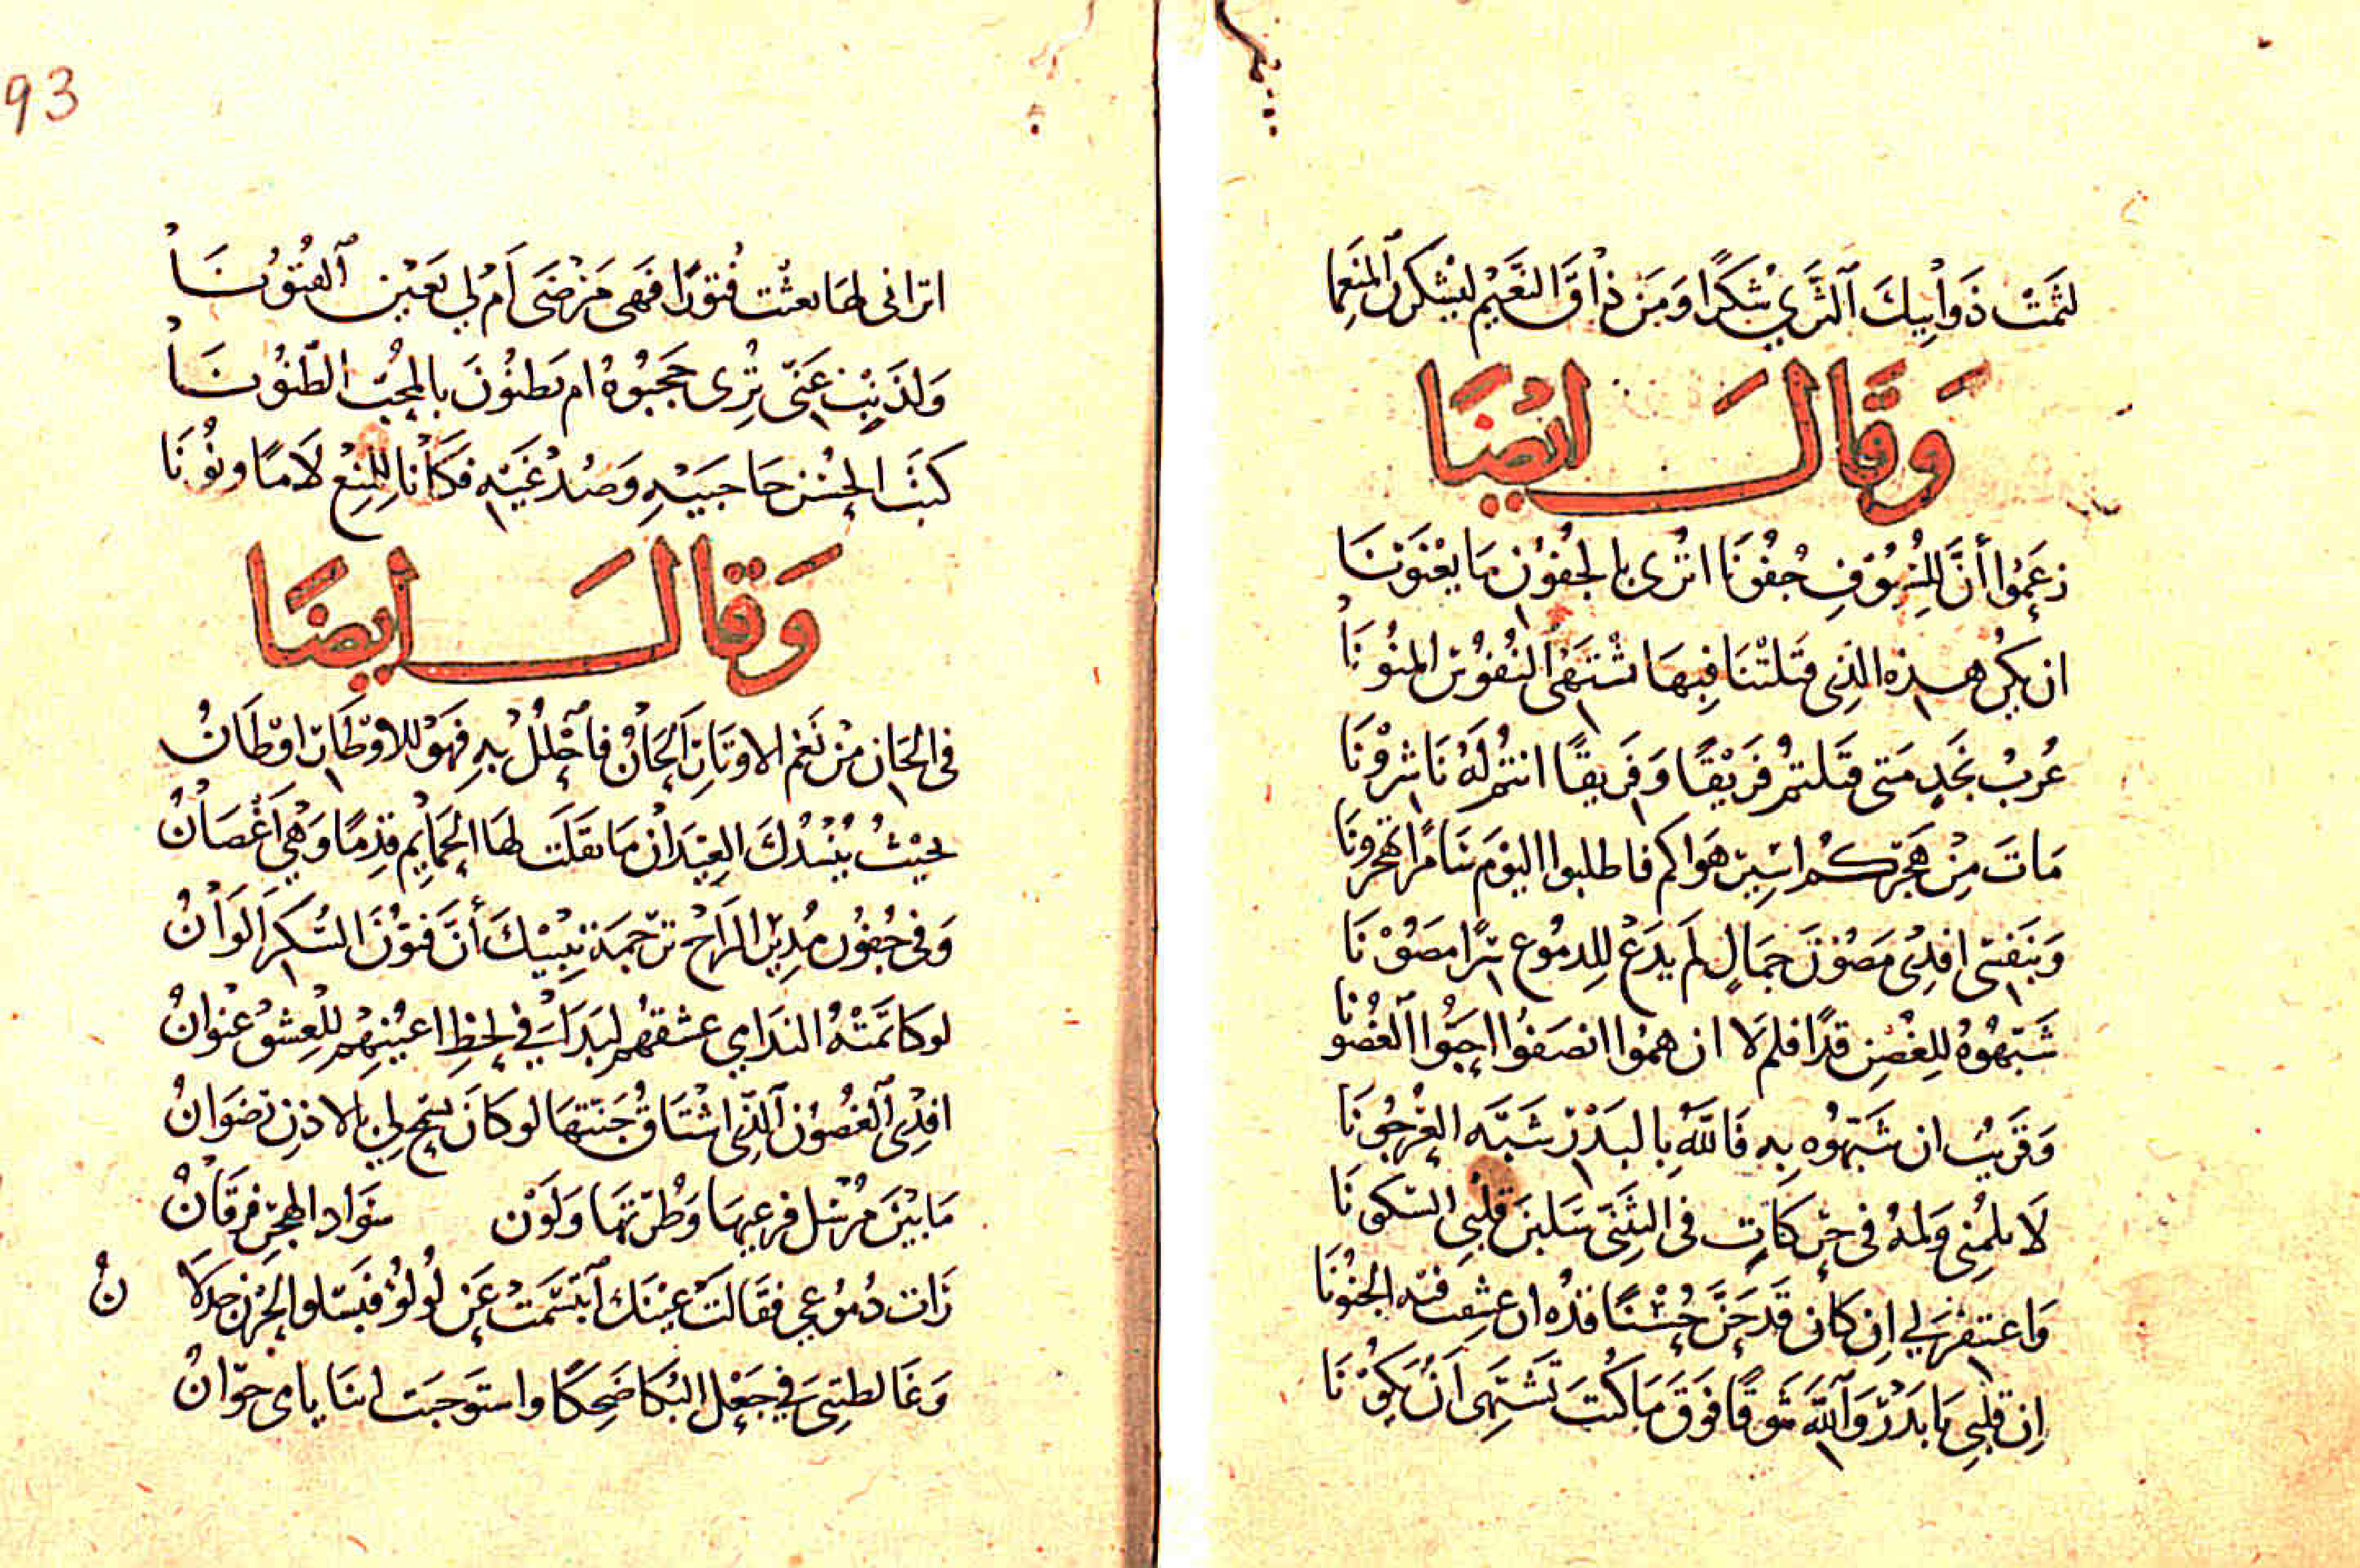 لثمت ذوابيك الثري شكرا ومن ذاق النعيم ليشكرن المنعما
وقال ايضا
زعموا أن للسيوف جفونا اترى بالجفون ما يعنونا
ان يكن هذه الذي قتلتنا فبها تشتهى النفوس المنونا
عرب نجد متى قتلتم فريقا وفريقا انتم له ناشرونا
مات من هجركم اسير هواكم فاطلبوا اليوم
وبنفسى افدى مصون جمال لم يدع للدموع سرا مصونا
شبهوه للغصن قدا فلم لا ان هموا انصفوا احبوا الغصونا
وقريب ان شبهوه به فالله بالبدر شبه العرجونا
لا يلمنى ولمه فى حركات فى التثنى سلبن قلبي السكونا
واعتفر لي ان كان قد جن حسنا فذه ان عشقت فيه الجنونا
ان قلبي يا بدر والله شوقا فوق ما كنت تشتهى أن يكونا
93
اترانى لها بعثت فتورا فهى مرضى ام لي بعين الفتونا
ولذنب عنى ترى حجبوه ام يظنون بالمحب الظنونا
كتب الحسن حاجبيه وصدغيه فكانا للمنع لاما ونونا
وقال ايضا
فى الحان من نغم الاوتار الحان فاحلل به فهو للاوطار اوطان
بحيث ينشدك العيدان ما نقلت لها الحمايم قدما وهي اغصان
وفى جفون مدير الراح ترجمة تنبيك أن فنون السكر الوان
لو كاتمته الندامي عشقهم لبدا في لحظ اعينهم للعشق عنوان
افدى الغصون الذى اشتاق جنتها لو كان يسمح لي بالاذن رضوان
ما بين مرسل فرعيها وطرتها ولون سواد الهجر فرقان
رات دموعي فقالت عينك ابتسمت عن لولو فبسلو الحزن جذلان
وغالطتنى في جعل البكا ضحكا واستوجبت اننا يا مي